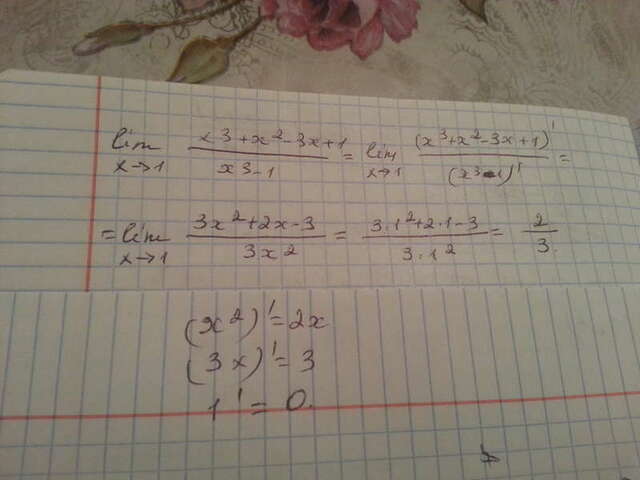 lim x→1 (x³+x²-3x+1)/(x³-1) = lim x→1 (x³+x²-3x+1)'/(x³-1)' =
= lim x→1 (3x²+2x-3)/(3x²) = (3·1²+2·1-3)/(3·1²) = 2/3.
(x²)'=2x
(3x)'=3
1'=0.